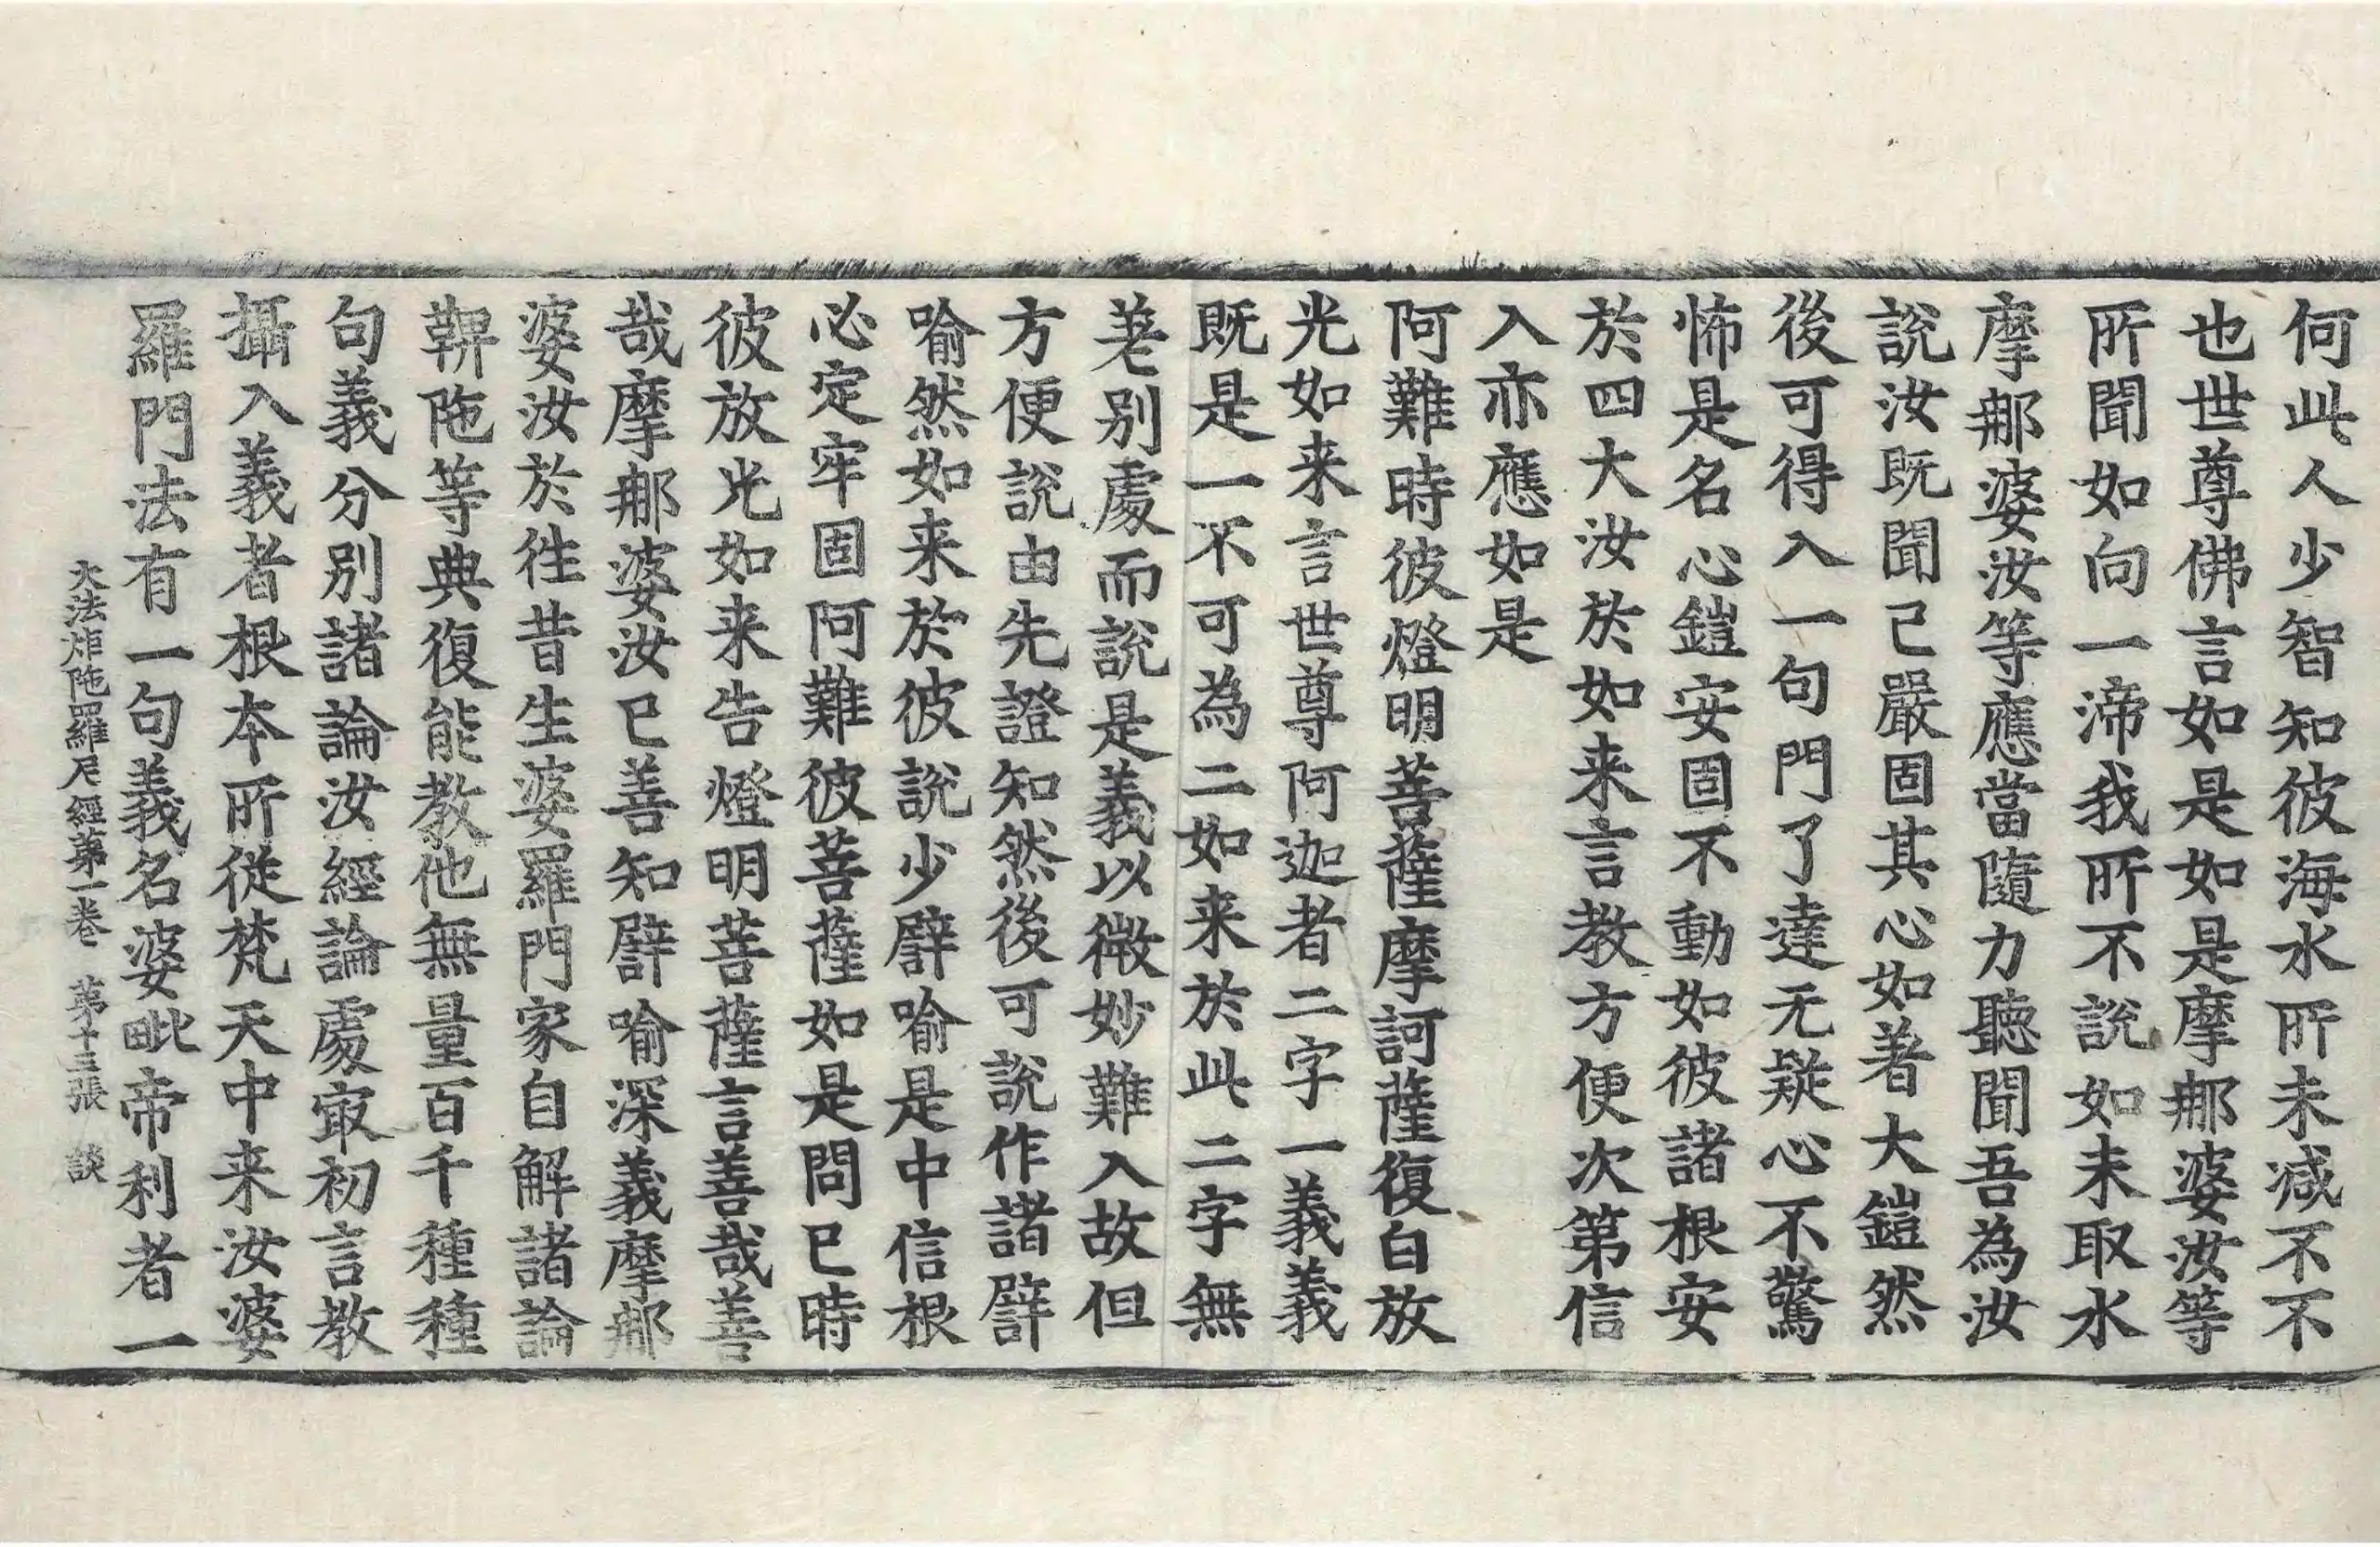 何此人少智知彼海水所未減不不
也世尊佛言如是如是摩那婆汝等
所聞如向一渧我所不說如未取水
摩那婆汝等應當隨力聽聞吾為汝
說汝既聞已嚴固其心如著大鎧然
後可得入一句門了達无疑心不驚
怖是名心鎧安固不動如彼諸根安
於四大汝於如来言教方便次第信
入亦應如是
阿難時彼燈明菩薩摩訶薩復白放
光如来言世尊阿迦者二字一義義
既是一不可為二如来於此二字無
差別處而說是義以微妙難入故但
方便說由先證知然後可說作諸譬
喻然如来於彼說少譬喻是中信根
必定牢固阿難彼菩薩如是問已時
彼放光如来告燈明菩薩言善哉善
哉摩那婆汝已善知譬喻深義摩那
婆汝於往昔生婆羅門家自解諸論
鞞陁等典復能教他無量百千種種
句義分別諸論汝經論處㝡初言教
攝入義者根本所從梵天中来汝婆
羅門法有一句義名婆毗帝利者一
大法炬陁羅尼經第一卷 第十三張 談